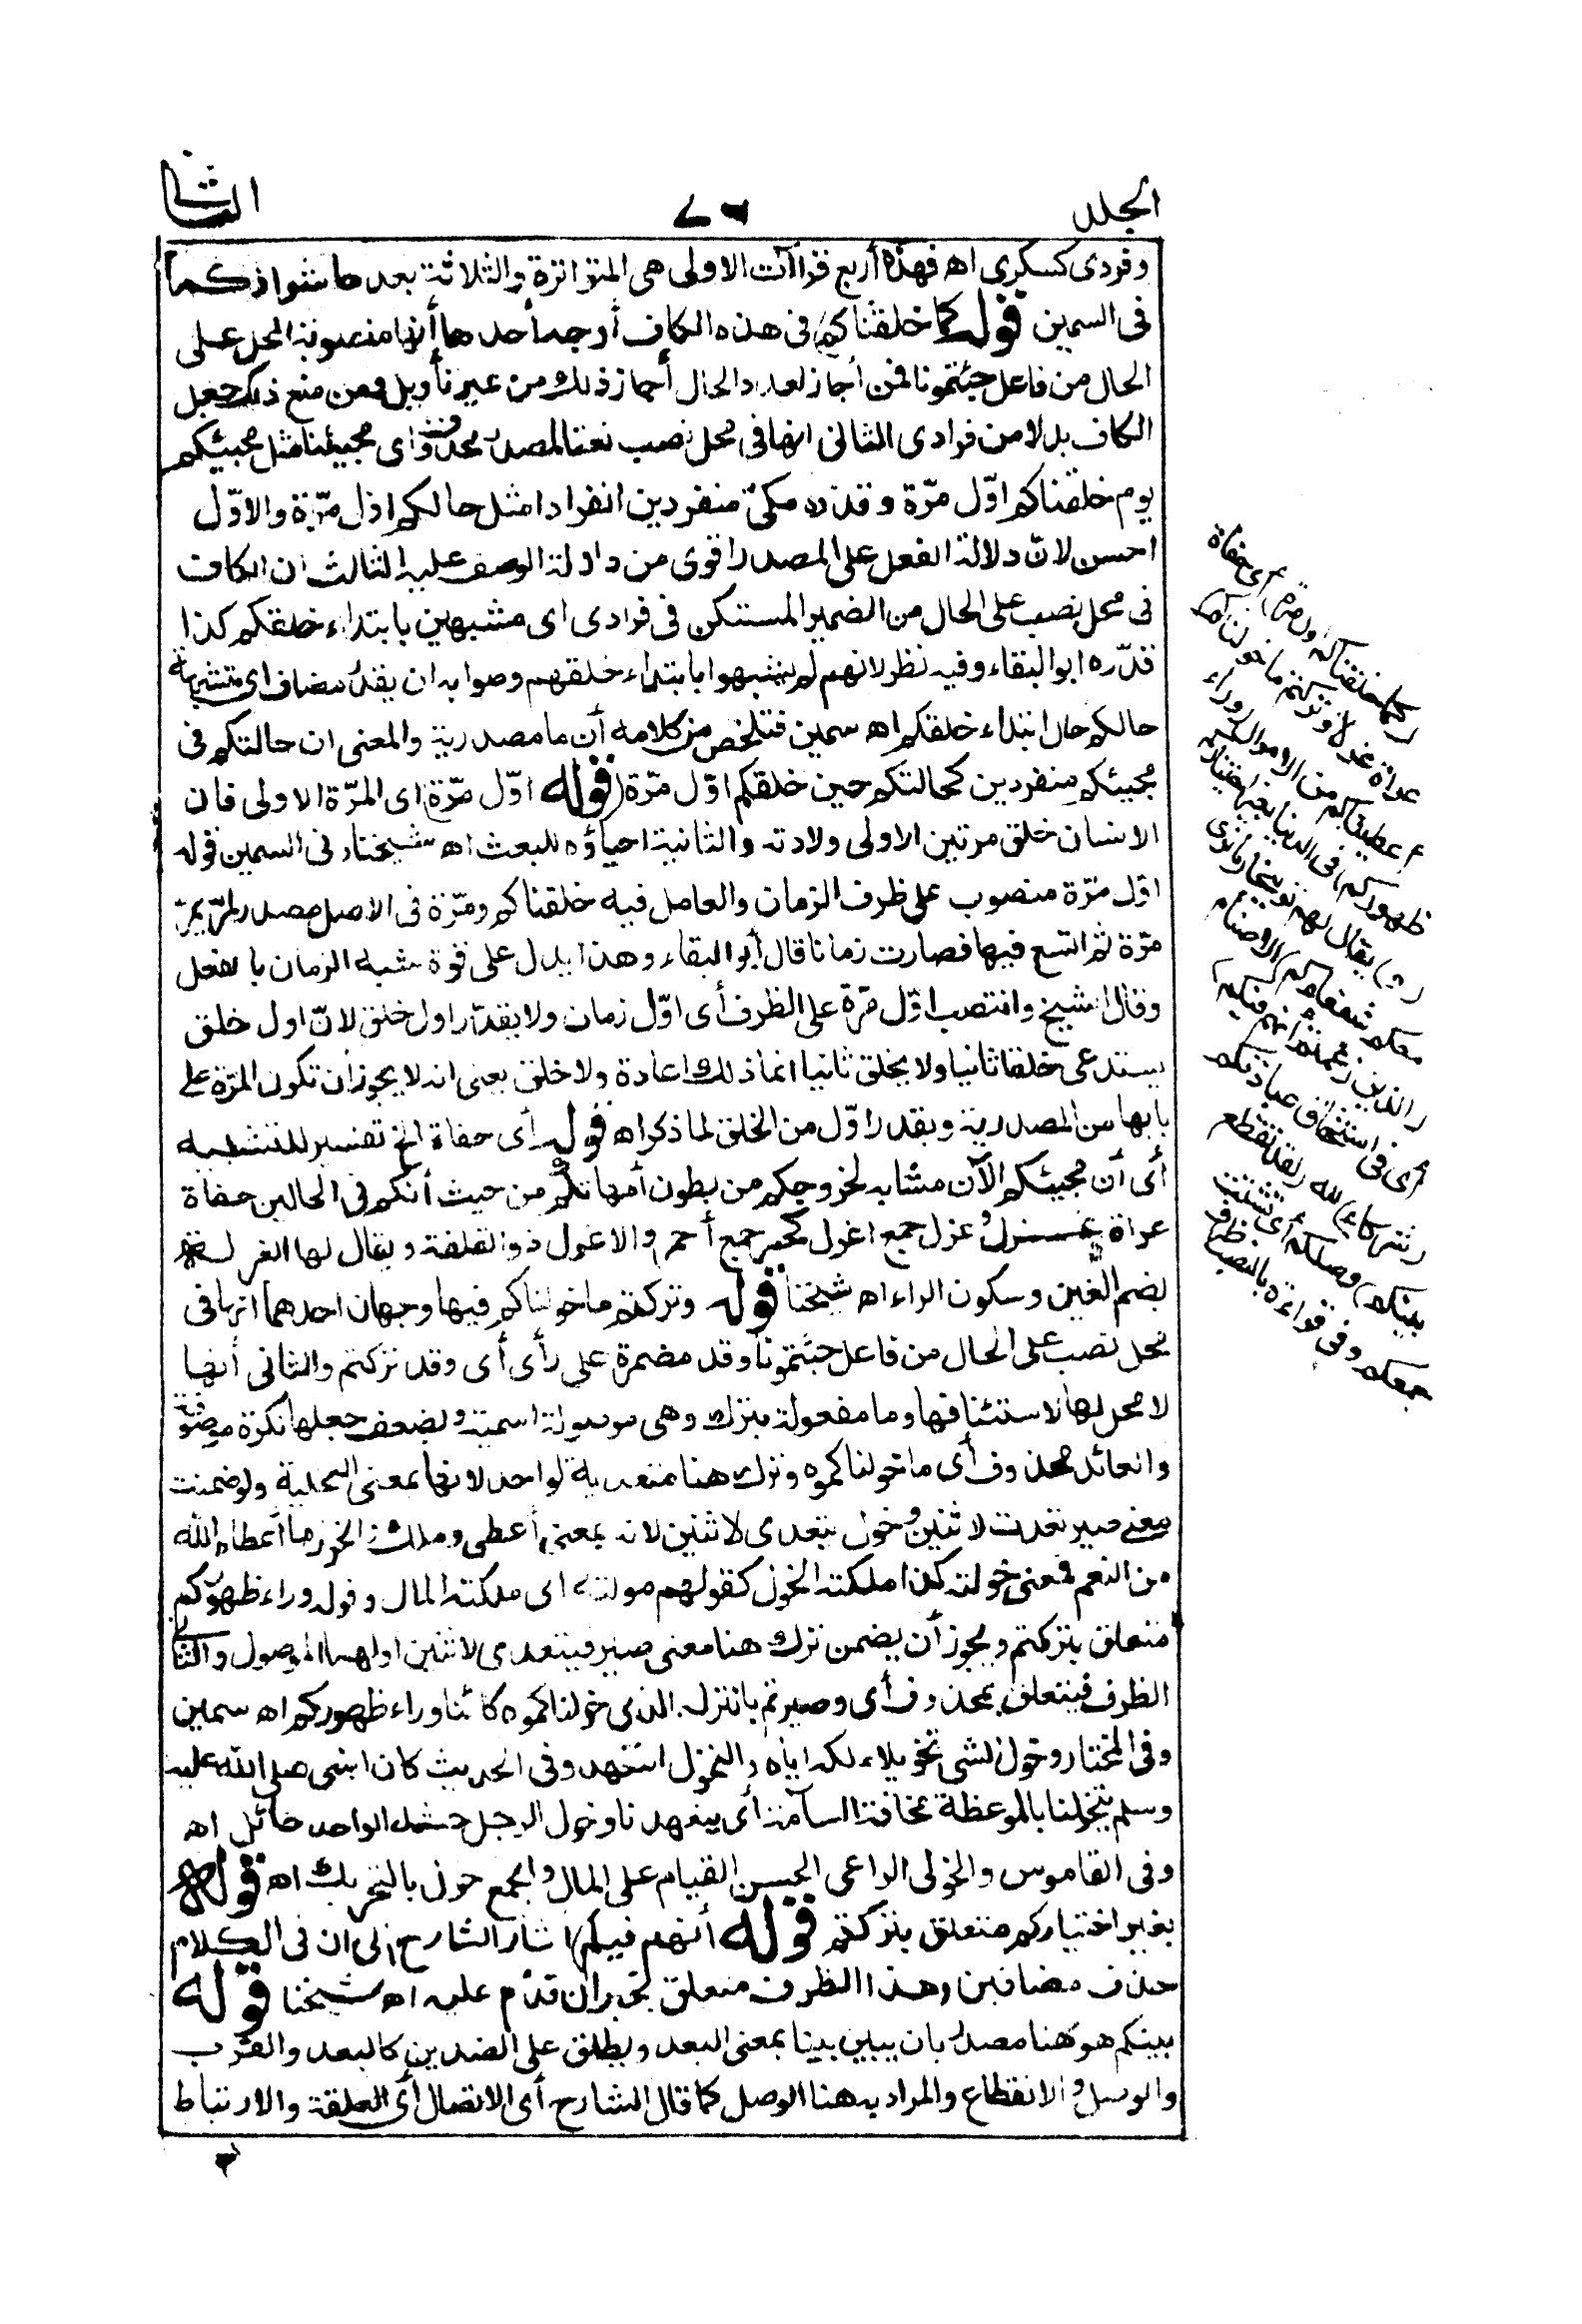 الجلد
٧٦
الثانى
وفردى كسكرى اه فهذه أربع قراآت الاولى هى المتواترة والثلاثة بعدها شواذ كما
فى السمين قوله كما خلقناكم فى هذه الكاف أوجه أحدها أنها منصوبة المحل على
الحال من فاعل جئتمونا فمن أجاز تعدد الحال أجاز ذلك من غير تأويل ومن منع ذلك جعل
الكاف بدلا من فرادى الثانى انها فى محل نصب نعتا لمصدر محذوف اى مجيئنا مثل مجيئكم
يوم خلقناكم اوّل مرّة وقدّره مكى منفردين انفرادا مثل حالكم اوّل مرّة والاوّل
احسن لانّ دلالة الفعل على المصدر اقوى من دلالة الوصف عليه الثالث ان الكاف
فى محل نصب على الحال من الضمير المستكن فى فرادى اى مشبهين بابتداء خلقكم كذا
قدّره ابو البقاء وفيه نظر لانهم لم يشبهوا بابتداء خلقهم وصوابه ان يقدّر مضاف اى مشبهة
حالكم حال ابتداء خلقكم اه سمين فتلخص من كلامه أن ما مصدرية والمعنى ان حالتكم فى
مجيئكم منفردين كحالتكم حين خلقكم اوّل مرّة (قوله اوّل مرّة) اى المرّة الاولى فان
الانسان خلق مرتين الاولى ولادته والثانية احياؤه للبعث اه شيخنا وفى السمين قوله
اوّل مرّة منصوب على ظرف الزمان والعامل فيه خلقناكم ومرّة فى الاصل مصدر لمرّ يمرّ
مرّة ثم اتسع فيها فصارت زمانا قال أبو البقاء وهذا يدل على قوة شبه الزمان بالفعل
وقال الشيخ وانتصب اوّل مرّة على الظرف أى اوّل زمان ولا يقدّر اول خلق لانّ اول خلق
يستدعى خلقا ثانيا ولا يخلق ثانيا انما ذلك اعادة ولا خلق يعنى انه لا يجوز أن تكون المرّة على
بابها من المصدرية ويقدر اوّل من الخلق لما ذكر اه قوله أى حفاة الخ تفسير للتشبيه
أى أن مجيئكم الآن مشابه لخروجكم من بطون أمهاتكم من حيث أنكم فى الحالين حفاة
عراة غرل وغرل جمع اغرل كحمر جمع أحمر والاغرل ذو القلفة ويقال لها الغرلة
بضم الغين وسكون الراء اه شيخنا قوله وتركتم ما خولناكم فيها وجهان احدهما انها فى
محل نصب على الحال من فاعل جئتمونا وقد مضمرة على رأى أى وقد تركتم والثانى أنها
لا محل لها لاستئنافها وما مفعولة بترك وهى موصولة اسمية ويضعف جعلها نكرة موصوفة
والعائد محذوف أى ما خولناكموه وترك هنا متعدية لواحد لانها بمعنى التخلية ولو ضمنت
معنى صير تعدت لاثنين وخول يتعدى لاثنين لانه بمعنى أعطى وملك الخول ما أعطاه الله
من النعم فمعنى خولته كذا ملكته الخول كقولهم مولته اى ملكته المال وقوله وراء ظهوركم
متعلق بتركتم ويجوز أن يضمن ترك هنا معنى صير فيتعدى لاثنين اولهما الموصول والثانى
الظرف فيتعلق بمحذوف أى وصيرتم بالترك الذى خولناكموه كائنا وراء ظهوركم اه سمين
وفى المختار وخوله الشى تخويلا ملكه اياه والتخول التعهد وفى الحديث كان النبى صلى الله عليه
وسلم يتخولنا بالموعظة مخافة السآمة أى يتعهدنا وخول الرجل حشمه الواحد خائل اه
وفى القاموس والخولى الراعى الحسن القيام على المال والجمع خول بالتحريك اه قوله
بغير اختياركم متعلق بتركتم قوله أنهم فيكم اشار الشارح الى ان فى الكلام
حذف مضافين وهذا الظرف متعلق بخبر ان قدّم عليه اه شيخنا قوله
بينكم هو هنا مصدر بان يبين بينا بمعنى البعد ويطلق على الضدين كالبعد والقرب
والوصل والانقطاع والمراد به هنا الوصل كما قال الشارح أى الاتصال أى العلقة والارتباط
(كما خلقناكم اول مرة) أى حفاة
عراة غرلا (وتركتم ما خولناكم)
أعطيناكم من الاموال (وراء
ظهوركم) فى الدنيا بغير اختياركم
(و) يقال لهم توبيخا (ما نرى
معكم شفعاءكم) الاصنام
(الذين زعمتم انهم فيكم)
أى فى استحقاق عبادتكم
(شركاء) لله (لقد تقطع
بينكم) وصلكم أى تشتت
جمعكم وفى قراءة بالنصب ظرف